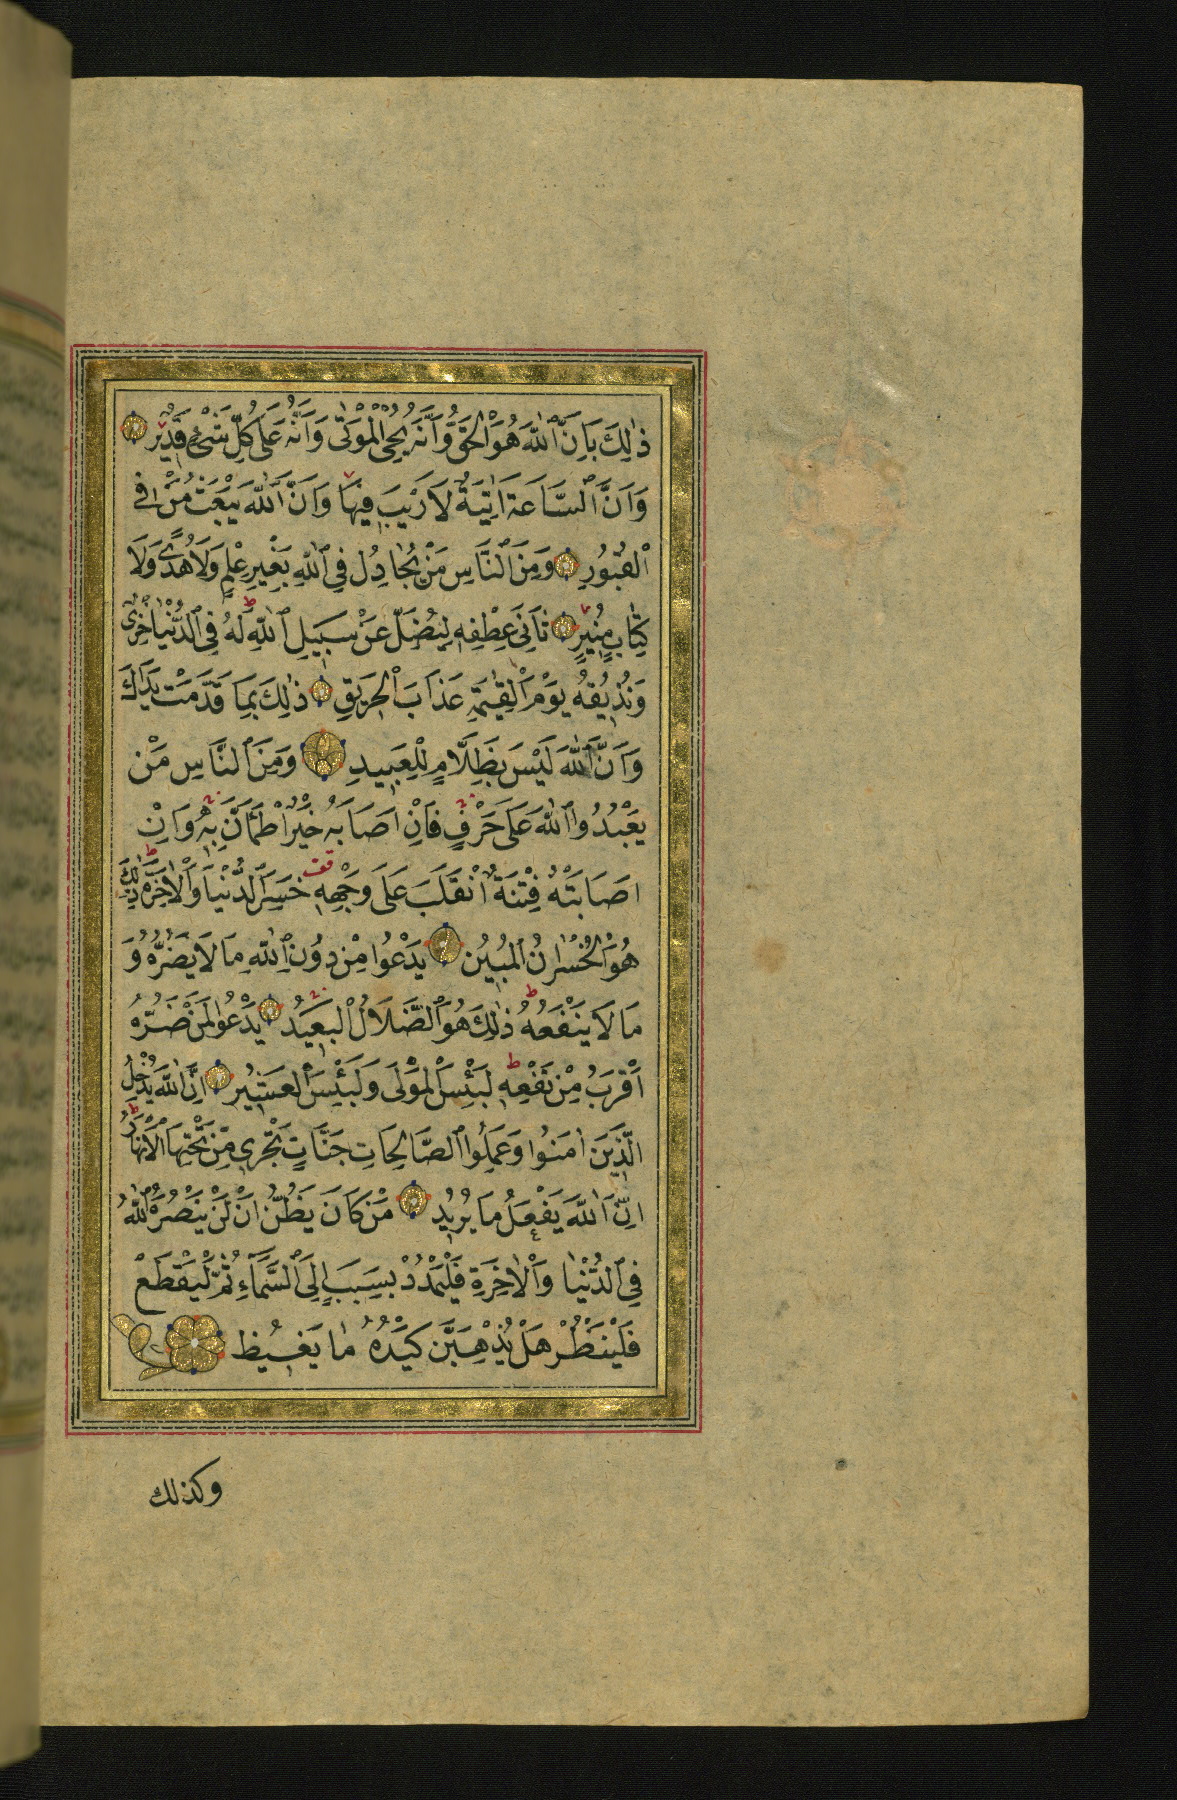 ذٰلِكَ بِاَنَّ ٱللّٰهَ هُوَ ٱلْحَقُّ وَاَنَّهُ يُحْيِ ٱلْمَوْتٰى وَاَنَّهُ عَلٰى كُلِّ شَىْءٍ قَدِيرٌ
وَاَنَّ ٱلسَّاعَةَ اٰتِيَةٌ لَا رَيْبَ فِيهَا وَاَنَّ ٱللّٰهَ يَبْعَثُ مَنْ فِى
ٱلْقُبُورِ وَمِنَ ٱلنَّاسِ مَنْ يُجَادِلُ فِى ٱللّٰهِ بِغَيْرِ عِلْمٍ وَلَا هُدًى وَلَا
كِتَابٍ مُنِيرٍ ثَانِىَ عِطْفِهِ لِيُضِلَّ عَنْ سَبِيلِ ٱللّٰهِ لَهُ فِى ٱلدُّنْيَا خِزْىٌ
وَنُذِيقُهُ يَوْمَ ٱلْقِيٰمَةِ عَذَابَ ٱلْحَرِيقِ ذٰلِكَ بِمَا قَدَّمَتْ يَدَاكَ
وَاَنَّ ٱللّٰهَ لَيْسَ بِظَلَّامٍ لِلْعَبِيدِ وَمِنَ ٱلنَّاسِ مَنْ
يَعْبُدُوا ٱللّٰهَ عَلٰى حَرْفٍ فَاِنْ اَصَابَهُ خَيْرٌ ٱطْمَأَنَّ بِهِ وَاِنْ
اَصَابَتْهُ فِتْنَةٌ ٱنْقَلَبَ عَلٰى وَجْهِهِ قف خَسِرَ ٱلدُّنْيَا وَٱلْاٰخِرَةَ ذٰلِكَ
هُوَ ٱلْخُسْرَانُ ٱلْمُبِينُ يَدْعُوا مِنْ دُونِ ٱللّٰهِ مَا لَا يَضُرُّهُ وَ
مَا لَا يَنْفَعُهُ ذٰلِكَ هُوَ ٱلضَّلَالُ ٱلْبَعِيدُ يَدْعُوا لَمَنْ ضَرُّهُ
اَقْرَبُ مِنْ نَفْعِهِ لَبِئْسَ ٱلْمَوْلٰى وَلَبِئْسَ ٱلْعَشِيرُ اِنَّ ٱللّٰهَ يُدْخِلُ
ٱلَّذِينَ اٰمَنُوا وَعَمِلُوا ٱلصَّالِحَاتِ جَنَّاتٍ تَجْرِى مِنْ تَحْتِهَا ٱلْاَنْهَارُ
اِنَّ ٱللّٰهَ يَفْعَلُ مَا يُرِيدُ مَنْ كَانَ يَظُنُّ اَنْ لَنْ يَنْصُرَهُ ٱللّٰهُ
فِى ٱلدُّنْيَا وَٱلْاٰخِرَةِ فَلْيَمْدُدْ بِسَبَبٍ اِلَى ٱلسَّمَآءِ ثُمَّ لْيَقْطَعْ
فَلْيَنْظُرْ هَلْ يُذْهِبَنَّ كَيْدُهُ مَا يَغِيظُ
وكذلك